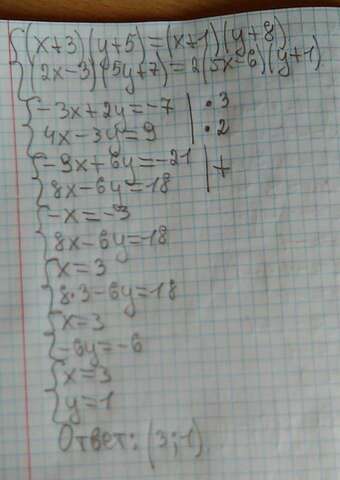 (x+3)(y+5)=(x+1)(y+8)
(2x-3)(5y+7)=2(5x-6)(y+1)
-3x+2y=-7 |·3
4x-3y=9 |·2
-9x+6y=-21 |+
8x-6y=18
-x=-3
8x-6y=18
x=3
8·3-6y=18
x=3
-6y=-6
x=3
y=1
Ответ: (3;1).